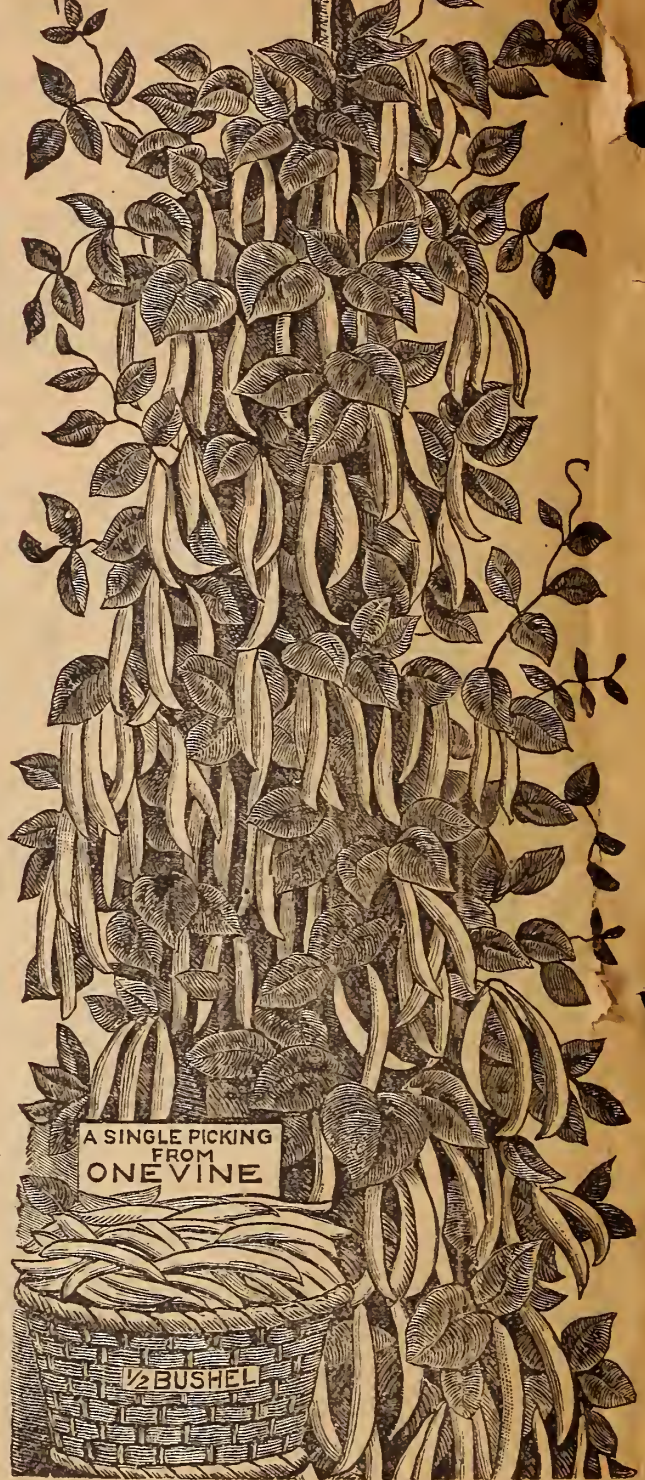 A SINGLE PICKING
FROM
ONE VINE
½ BUSHEL